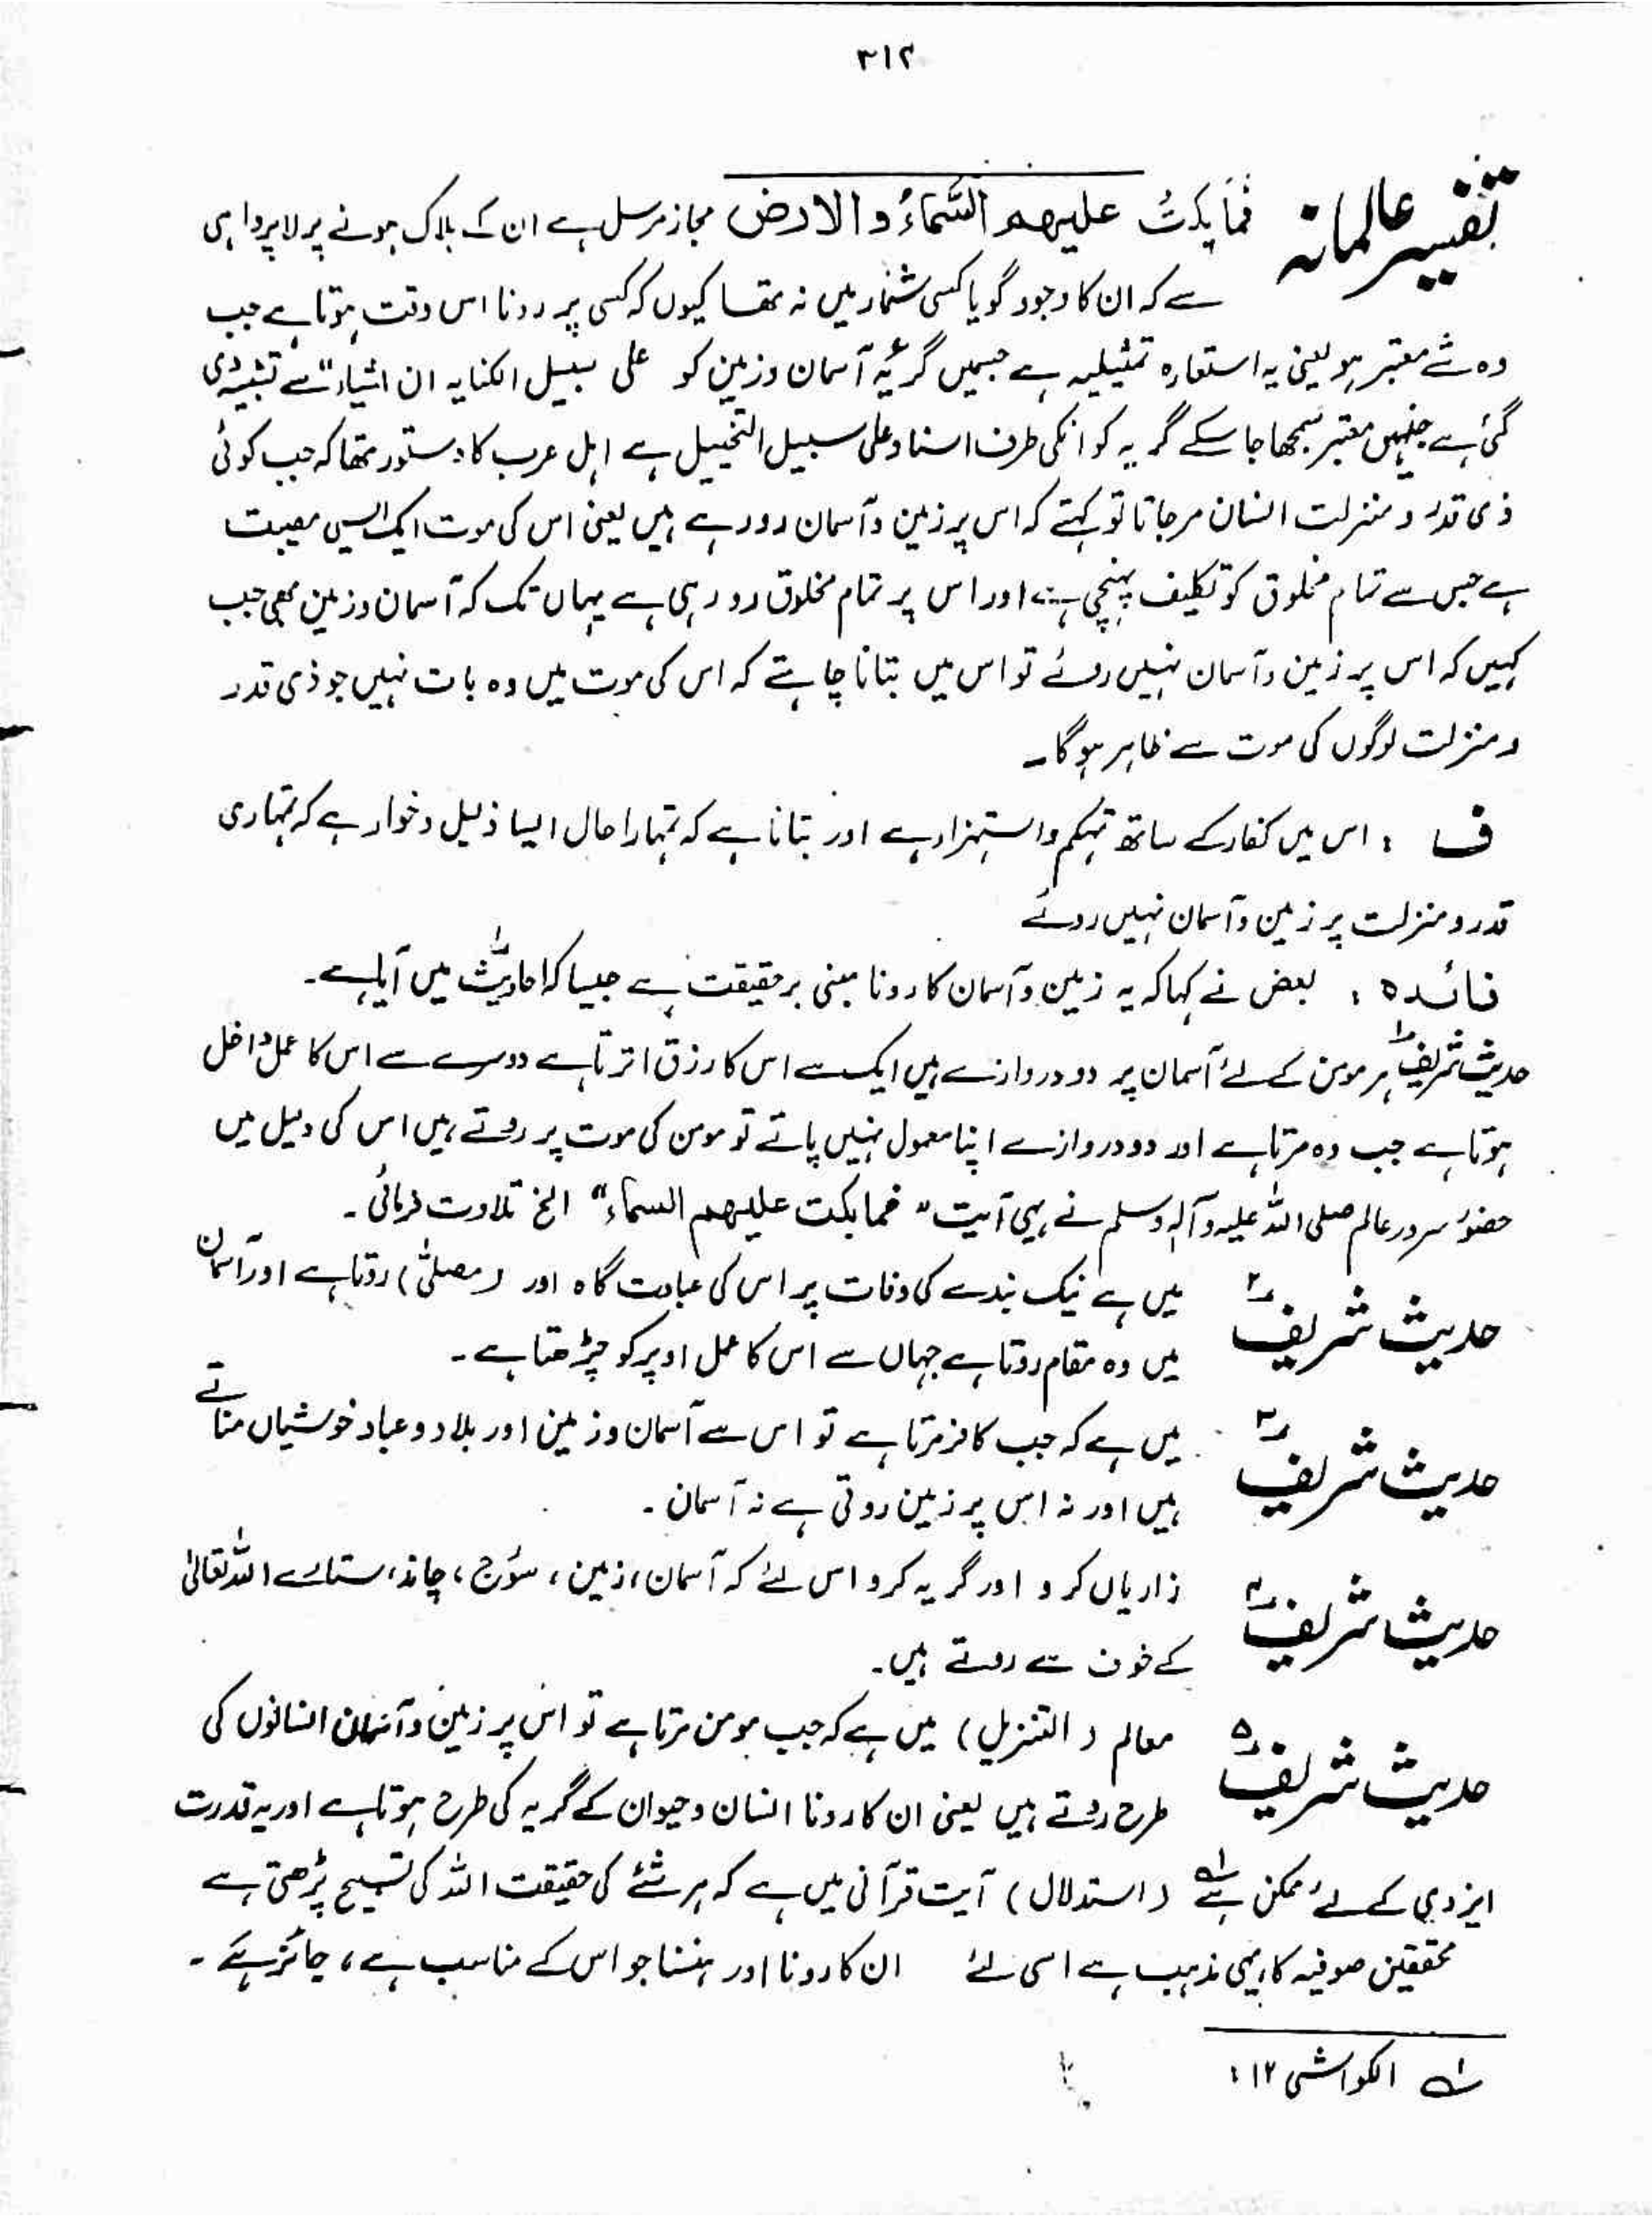 ۳۱۲
تفسیر عالمانہ فَمَا بَکَتْ علیھم السَّمَاءُ و الارض مجاز مرسل ہے ان کے ہلاک ہونے پر لاپرواہی
سے کہ ان کا وجود گویا کسی شمار میں نہ تھا کیوں کہ کسی پر رونا اس وقت ہوتا ہے جب
وہ شے معتبر ہو یعنی یہ استعارہ تمثیلیہ ہے جسمیں گریۂ آسمان و زمین کو علی سبیل الکنایہ ان اشیاء سے تشبیہ دی
گئی ہے جنہیں معتبر سمجھا جا سکے گریہ کو انکی طرف اسناد علی سبیل التخییل ہے اہل عرب کا دستور تھا کہ جب کوئی
ذی قدر و منزلت انسان مرجاتا تو کہتے کہ اس پر زمین و آسمان رو رہے ہیں یعنی اس کی موت ایک ایسی مصیبت
ہے جس سے تمام مخلوق کو تکلیف پہنچی ہے اور اس پر تمام مخلوق رو رہی ہے یہاں تک کہ آسمان و زمین بھی جب
کہیں کہ اس پر زمین و آسمان نہیں روئے تو اس میں بتانا چاہتے کہ اس کی موت میں وہ بات نہیں جو ذی قدر
و منزلت لوگوں کی موت سے ظاہر ہوگا۔
ف : اس میں کفار کے ساتھ تہکم و استہزاء ہے اور بتانا ہے کہ تمہارا حال ایسا ذلیل و خوار ہے کہ تمہاری
قدر و منزلت پر زمین و آسمان نہیں روئے
فائدہ : بعض نے کہا کہ یہ زمین و آسمان کا رونا مبنی بر حقیقت ہے جیسا کہ احادیث میں آیا ہے۔
حدیث شریف ۱ ہر مومن کے لئے آسمان پر دو دروازے ہیں ایک سے اس کا رزق اترتا ہے دوسرے سے اس کا عمل داخل
ہوتا ہے جب وہ مرتا ہے اور دو دروازے اپنا معمول نہیں پاتے تو مومن کی موت پر روتے ہیں اس کی دلیل میں
حضور سرور عالم صلی اللہ علیہ وآلہ وسلم نے یہی آیت " فما بکت علیھم السماء" الخ تلاوت فرمائی۔
حدیث شریف ۲ میں ہے نیک بندے کی وفات پر اس کی عبادت گاہ اور (مصلیٰ) روتا ہے اور آسمان
میں وہ مقام روتا ہے جہاں سے اس کا عمل اوپر کو چڑھتا ہے۔
حدیث شریف ۳ میں ہے کہ جب کافر مرتا ہے تو اس سے آسمان و زمین اور بلاد و عباد خوشیاں مناتے
ہیں اور نہ اس پر زمین روتی ہے نہ آسمان۔
حدیث شریف ۴ زاریاں کرو اور گریہ کرو اس لئے کہ آسمان، زمین، سورج، چاند، ستارے اللہ تعالیٰ
کے خوف سے روتے ہیں۔
حدیث شریف ۵ معالم (التنزیل) میں ہے کہ جب مومن مرتا ہے تو اس پر زمین و آسمان انسانوں کی
طرح روتے ہیں یعنی ان کا رونا انسان و حیوان کے گریہ کی طرح ہوتا ہے اور یہ قدرت
ایزدی کے لئے ممکن ہے ۱ (استدلال) آیت قرآنی میں ہے کہ ہر شئے کی حقیقت اللہ کی تسبیح پڑھتی ہے
محققین صوفیہ کا یہی مذہب ہے اسی لئے ان کا رونا اور ہنسنا جو اس کے مناسب ہے، جائز ہے۔
۱ الکواشی ۱۲ :